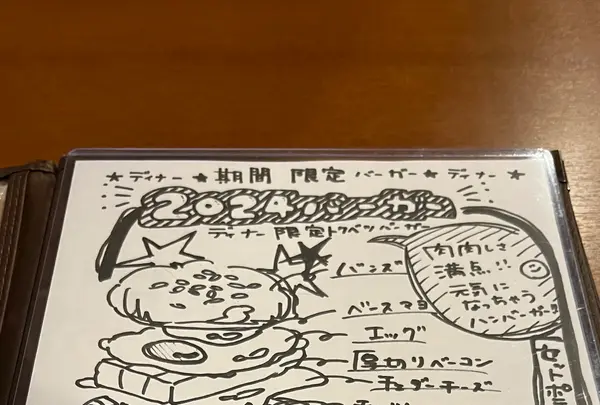 ★ディナー★期間 限定 バーガー★ディナー★
2024バーガー
ディナー限定トクベツバーガー
肉肉しさ
満点!!
元気に
なっちゃう
ハンバーガー
バンズ
ベースマヨ
エッグ
厚切りベーコン
チェダーチーズ
セットポ